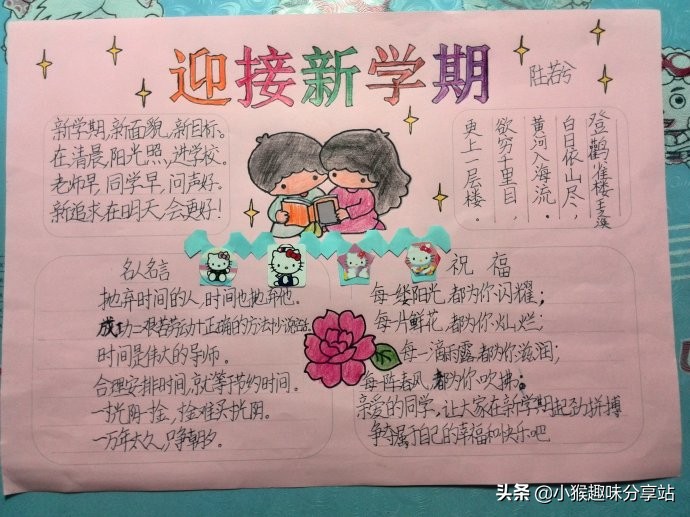 迎接新学期
陆若兮
新学期,新面貌,新目标。
在清晨,阳光照,进学校。
老师早,同学早,问声好。
新追求在明天,会更好!
登鹳雀楼 王之涣
白日依山尽,
黄河入海流。
欲穷千里目,
更上一层楼。
名人名言
抛弃时间的人,时间也抛弃他。
成功=艰苦劳动+正确的方法+少说空话
时间是伟大的导师。
合理安排时间,就等于节约时间。
一寸光阴一寸金,寸金难买寸光阴。
一万年太久,只争朝夕。
祝福
每一缕阳光,都为你闪耀;
每一片鲜花,都为你灿烂;
每一滴雨露,都为你滋润;
每一阵春风,都为你吹拂。
亲爱的同学,让大家在新学期起劲拼搏
争夺属于自己的幸福和快乐吧
头条 @小猴趣味分享站